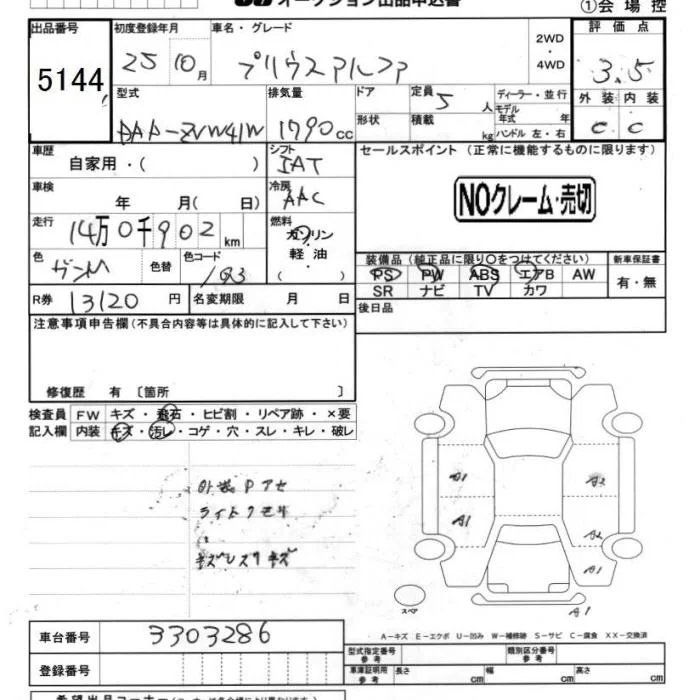 オークション出品申込書
①会場控
出品番号
5144
初度登録年月
25 10月
車名・グレード
プリウスアルファ
2WD
・
4WD
評価点
3.5
型式
DAA-ZVW41W
排気量
1790cc
ドア
形状
定員 5人
積載 kg
ディーラー・並行
モデル
年式 年
ハンドル 左・右
外装 内装
C C
車歴
自家用・( )
シフト
IAT
車検
年 月( 日)
冷房
AAC
走行
14万0千902km
燃料
ガソリン
軽油
( )
色
色替
色コード
1G3
R券 13120円
名変期限 月 日
セールスポイント(正常に機能するものに限ります)
NOクレーム・売切
装備品(純正品に限り〇をつけてください)
PS PW ABS エアB AW
SR ナビ TV カワ
新車保証書
有・無
後日品
注意事項申告欄(不具合内容等は具体的に記入して下さい)
修復歴 有〔箇所 〕
検査員
記入欄
FW キズ・飛石・ヒビ割・リペア跡・×要
内装 キズ・汚レ・コゲ・穴・スレ・キレ・破レ
外装Pアセ
ライトクモリ
キズ
A1 A2
A1 A2
A1
スペア
A1
A-キズ E-エクボ U-凹み W-補修跡 S-サビ C-腐食 XX-交換済
車台番号 3303286
登録番号
型式指定番号
参考
類別区分番号
参考
車庫証明用
参考
長さ cm 幅 cm 高さ cm
希望出品コーナー